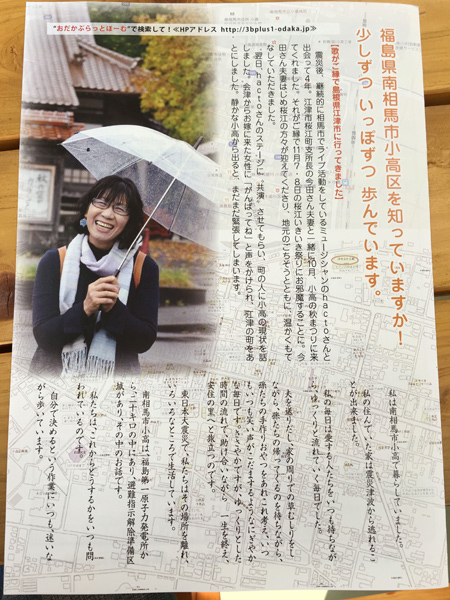 "おだかぷらっとほーむ"で検索して！≪HPアドレス http://3bplus1-odaka.jp≫
福島県南相馬市小高区を知っていますか！
少しずつ いっぽずつ 歩んでいます。
【歌がご縁で島根県江津市に行ってきました】
震災後、継続的に相馬市でライブ活動をしているミュージシャンのhactoさんと
出会って4年。江津市桜江町支所長の今田さん夫妻と一緒に10月、小高の秋まつりに来
てくれました。それがご縁で11月7・8日の桜江いきいき祭りにお邪魔することに。今
田さん夫妻はじめ桜江の方々が迎えてくださり、地元のごちそうとともに、温かくもて
なしていただきました。
翌日、hactoさんのステージに"共演"させてもらい、町の人に小高の現状を話
しました。会津からお嫁に来た女性に「がんばってね」と声をかけられ、江津の町をあ
とにしました。静かな小高から出ると、まだまだ緊張してしまいます。
私は南相馬市小高で暮らしていました。
私の住んでいた家は震災津波から逃れるこ
とが出来ました。
私の毎日は愛する人たちをいつも待ちなが
ら、ゆっくりと流れていく毎日でした。
夫を送りだし、家の周りでの草むしりをし
ながら、孫たちの帰ってくるのを待ちながら、
孫たちの手作りおやつをあれこれ考え、いつ
もいつも笑い声がこだまするようなにぎやか
な毎日です。ささやかですが、ゆっくりとした
時間の流れで、助け合いながら、一生を終え、
安住の里へと旅立つのです。
東日本大震災で、私たちはその場所を離れ、
いろいろなところで生活しています。
南相馬市小高は、福島第一原子力発電所か
ら、二十キロの中にあり、避難指示解除準備区
域があり、その中のお話です。
私たちは、これからどうするかをいつも問
われているのです。
自分で決めるという作業にいつも、迷いな
がら歩いています。